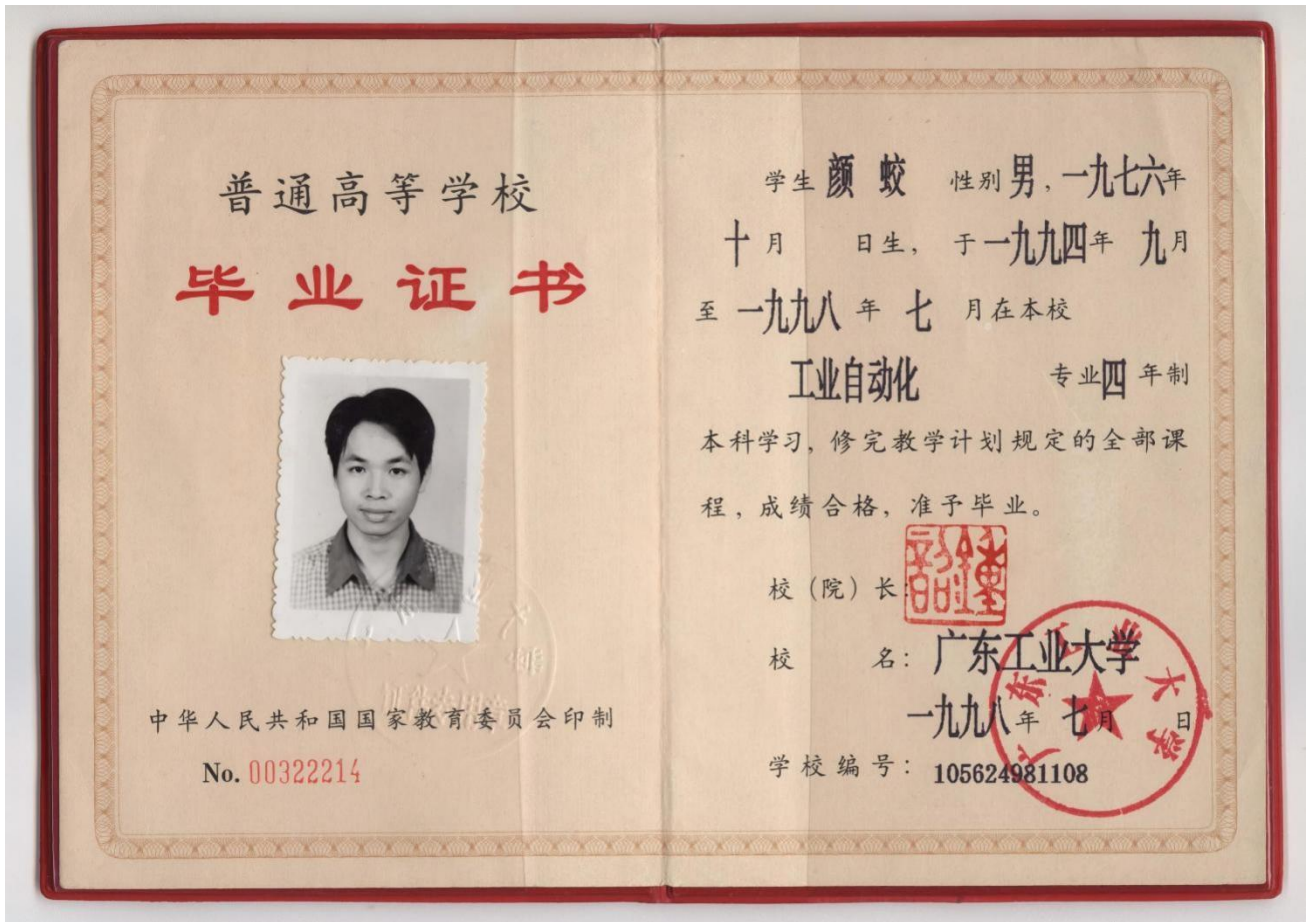 普通高等学校
毕业证书
中华人民共和国国家教育委员会印制
No. 00322214
学生 颜 蛟 性别男，一九七六年
十月 日生，于一九九四年 九月
至 一九九八 年 七 月在本校
工业自动化 专业四 年制
本科学习，修完教学计划规定的全部课
程，成绩合格，准予毕业。
校（院）长：
校 名：广东工业大学
一九九八年 七月 日
学校编号：105624981108
广东工业大学